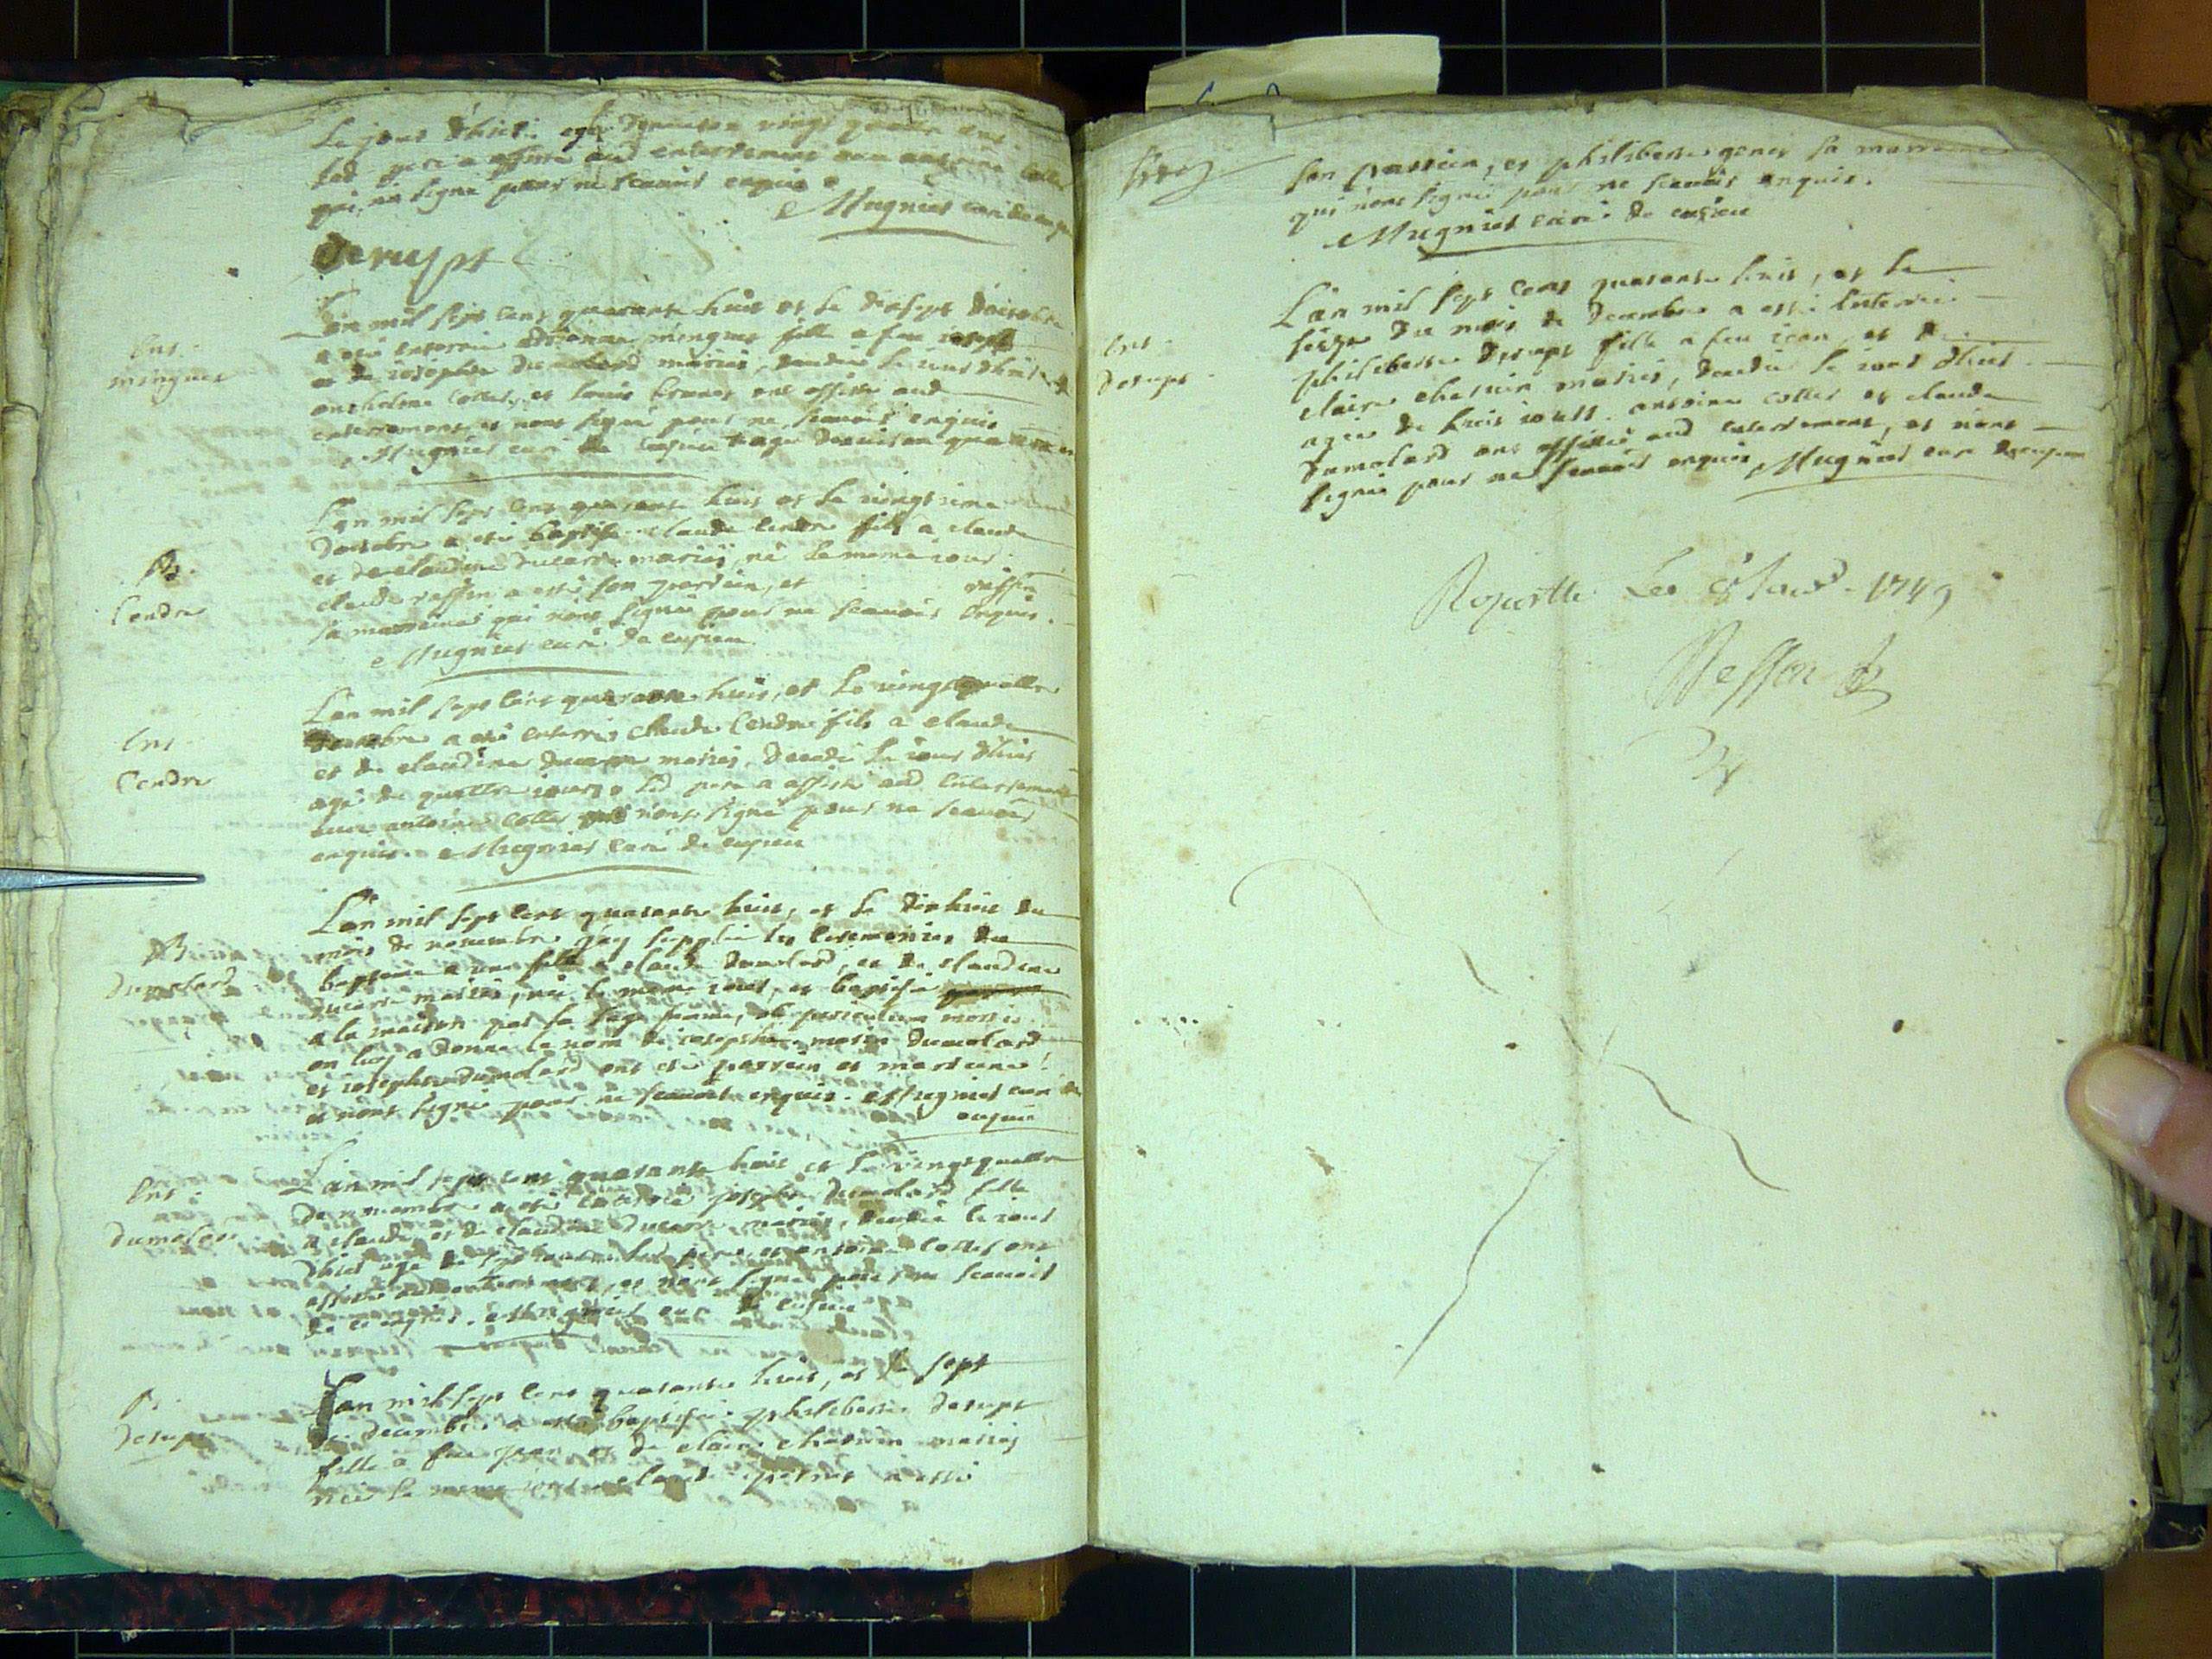 Le jour d'hier agé d'environ vingt quatre ans
led pere a assisté aud enterrement avec antoine Collet
qui n'a signé pour ne scavoir enquis
Mugnier curé de cusieu
derupt
Ent.
minguet
L'an mil sept cens quarante huit et le dixsept doctobre
a été enterrée minguet fille a feu joseph
et de josephte dumolard mariés, decedée le jour d'hier
anthelme Collet, et louis ont assisté aud
enterrement, et n'ont signé pour ne scavoir enquis
Mugnier curé de cusieu agée denviron
B.
Cendre
L'an mil sept cens quarante huit et le vingtieme
doctobre a été baptisé claude Cendre fils a claude
et de claudine ducarre mariés, né le meme jour.
claude raffin a esté son parrein, et raffin
sa marreine qui n'ont signé pour ne scavoir enquis.
Mugnier curé de cusieu
Ent.
Cendre
L'an mil sept cens quarante huit, et le vingtquattre
doctobre a été enterré claude Cendre fils a claude
et de claudine ducarre mariés, decedé le jour d'hier
agé de quattre jours, led pere a assisté aud enterrement
avec antoine Collet qui n'ont signé pour ne scavoir
enquis. Mugnier curé de cusieu
B.
dumolard
L'an mil sept cens quarante huit, et le dixhuit du
mois de novembre j'ay supplée les ceremonies du
bapteme a une fille a claude dumolard, et de claudine
ducarre mariés, née le meme jour, et baptisée
a la maison par la sage femme, ob periculum mortis
on luy a donné le nom de josephte, dumolard
et josephte dumolard ont été parrein et marreine
et n'ont signé pour ne scavoir enquis. Mugnier curé de
cusieu
Ent.
dumolard
L'an mil sept cens quarante huit et le vingtquattre
de novembre a été enterrée josephte dumolard fille
a claude, et de claudine ducarre mariés, decedée le jour
d'hier agée de sept jours led pere, et antoine Collet ont
assisté aud enterrement, et n'ont signé pour ne scavoir
de ce enquis. Mugnier curé de cusieu
B.
derupt
L'an mil sept cens quarante huit, et le sept
de decembre a esté baptisée philiberte derupt
fille a feu jean, et de claire mariés
née le meme jour claude a esté
son parrein, et philiberte sa marreine
qui n'ont signé pour ne scavoir enquis.
Mugnier curé de cusieu
Ent.
derupt
L'an mil sept cens quarante huit, et le
seize du mois de decembre a esté Enterrée
philiberte derupt fille a feu jean, et de
claire mariés, decedée le jour d'hier
agée de huit jours. antoine Collet et claude
dumolard ont assisté aud enterrement, et n'ont
signé pour ne scavoir enquis Mugnier curé de cusieu
1749